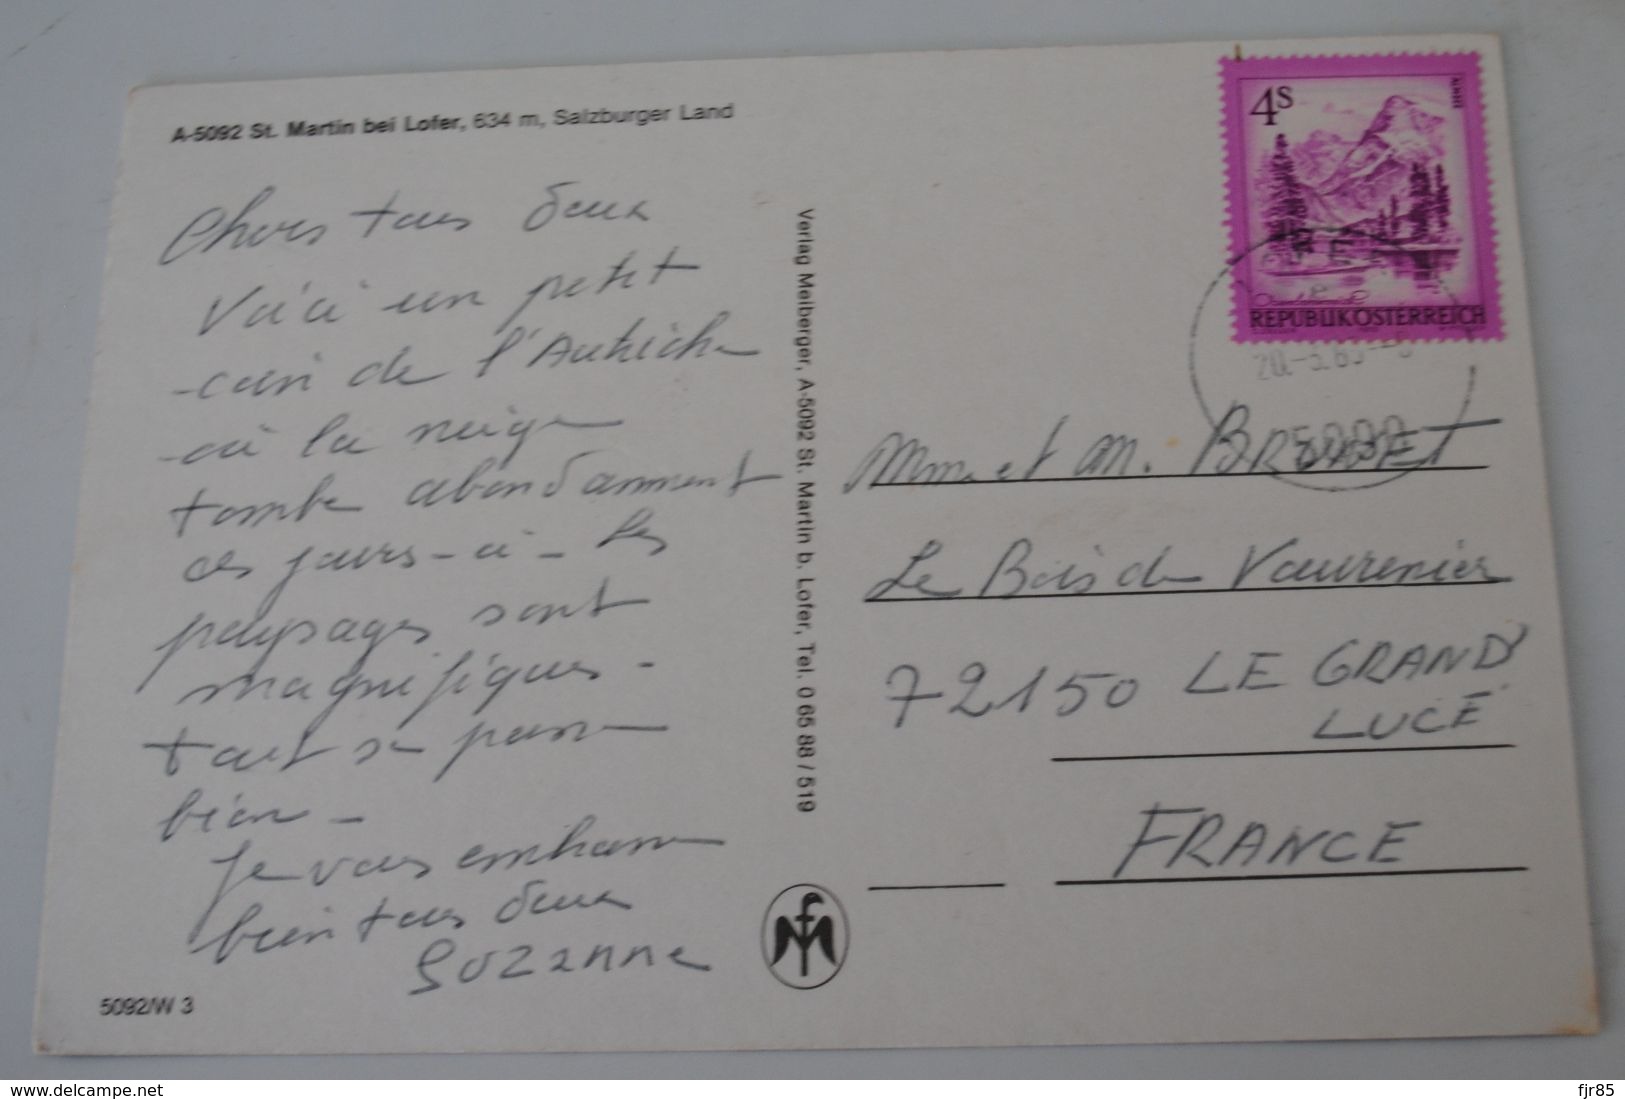 A-5092 St. Martin bei Lofer, 634 m, Salzburger Land
Chers tous deux
Voici un petit
coin de l'Autriche
où la neige
tombe abondamment
ces jours-ci - Les
paysages sont
magnifiques -
tout se passe
bien -
Je vous embrasse
bien tous deux
Suzanne
5092/W 3
Verlag Meiberger, A-5092 St. Martin b. Lofer, Tel. 0 65 88 / 519
4S
REPUBLIK ÖSTERREICH
Mme et M.
Le Bois de
72150 LE GRAND
LUCÉ
FRANCE
www.delcampe.net
fjr85